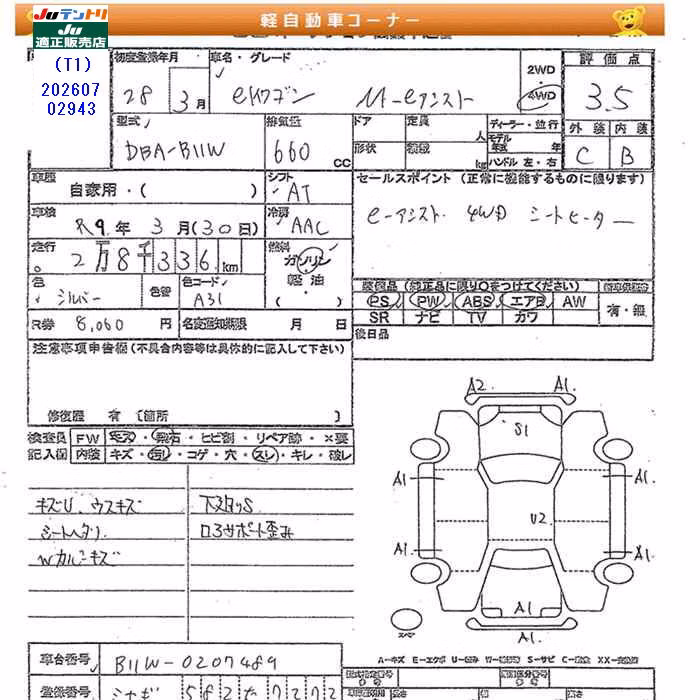 Juテントリ
Ju
適正販売店
軽自動車コーナー
(T1)
202607
02943
初度登録年月
車名・グレード
28 3月
eKワゴン M-eアシスト
2WD
4WD
評価点
3.5
外装 内装
C B
型式
DBA-B11W
排気量
660 CC
ドア
定員 人
形状
積載 kg
ディーラー・並行
モデル年式 年式
ハンドル 左・右
車歴
自家用・( )
シフト
AT
セールスポイント (正常に機能するものに限ります)
車検
R9. 年 3 月(30日)
冷房
AAC
e-アシスト 4WD シートヒーター
走行
2万8千336km
燃料
ガソリン
軽油
( )
色
シルバー
色替
色コード
A31
装備品(純正品に限り○をつけてください)
PS PW ABS エアB AW
SR ナビ TV カワ
有・無
R券 8,060 円
名変通知期限 月 日
後日品
注意事項申告欄(不具合内容等は具体的に記入して下さい)
修復歴 有 〔箇所 〕
検査員
記入欄
FW キズ・飛石・ヒビ割・リペア跡・×要
内装 キズ・汚れ・コゲ・穴・スレ・キレ・破レ
キズU、ウスキズ
下スタッS
シートヘタリ
ロアサポート歪み
Wカルニキズ
A2 A1
S1
A1 A1
U2
A1 A1
A1
A1
スペア
A-キズ E-エクボ U-凹み W-補修跡 S-サビ C-腐食 XX-交換済
車台番号
B11W-0207489
登録番号